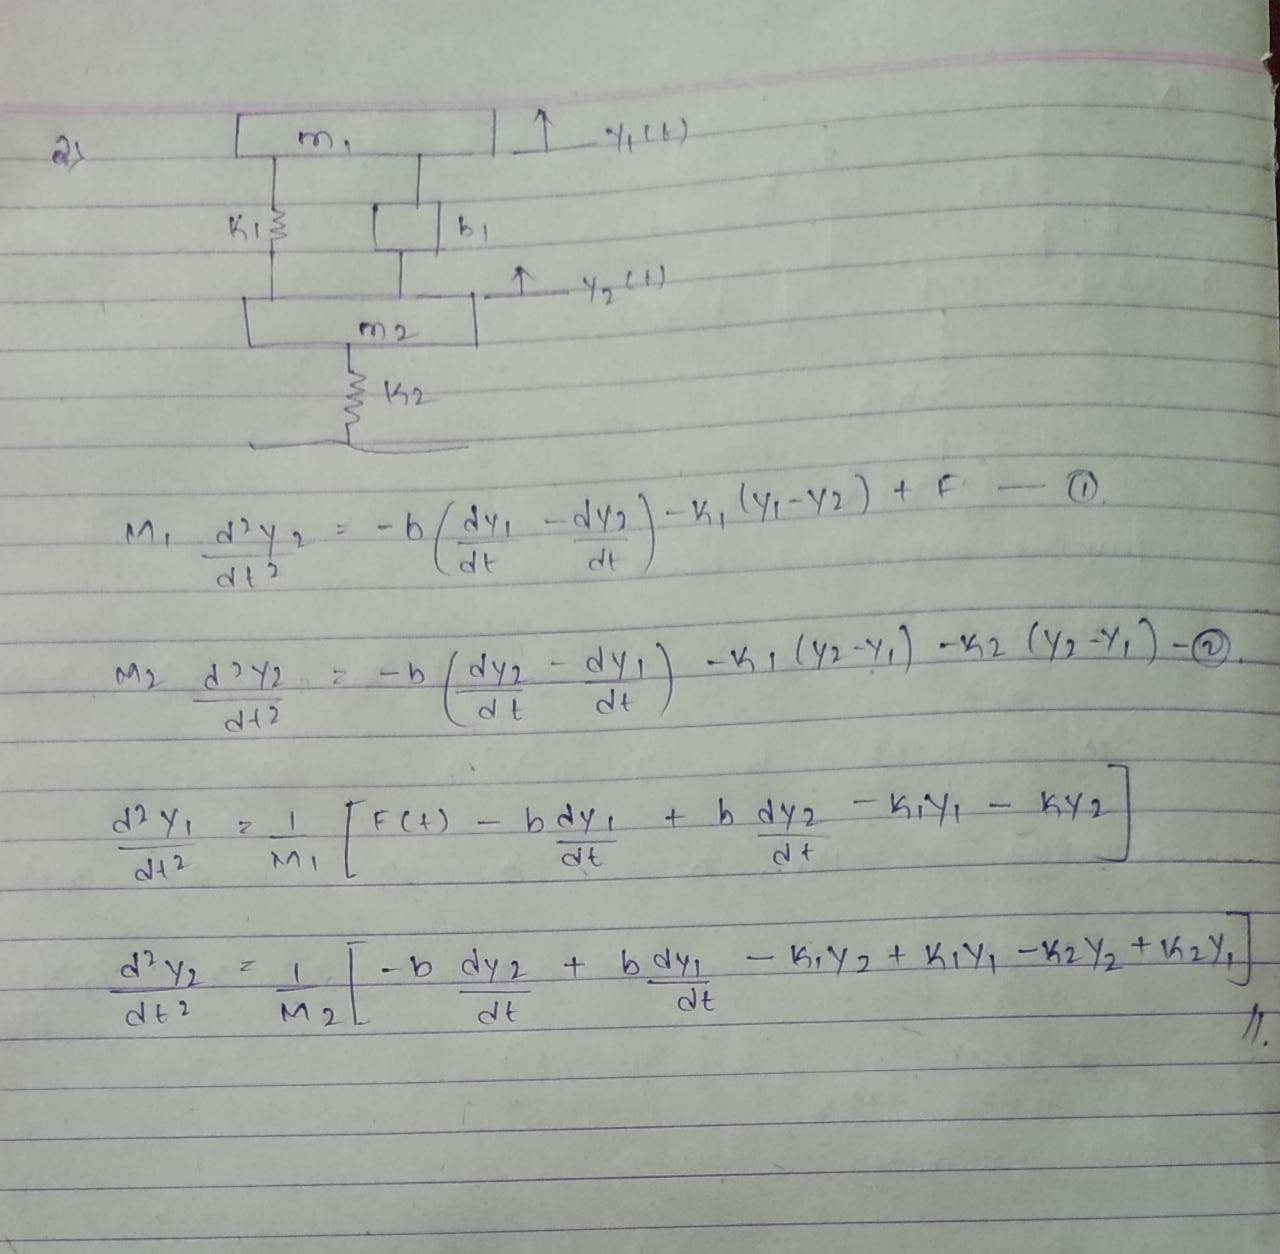 2)
m1
y1(t)
K1
b1
y2(t)
m2
K2
M1 d²y2/dt² = -b (dy1/dt - dy2/dt) - K1 (y1-y2) + F — ①
M2 d²y2/dt² = -b (dy2/dt - dy1/dt) - K1 (y2-y1) - K2 (y2-y1) - ②
d²y1/dt² = 1/M1 [F(t) - b dy1/dt + b dy2/dt - K1y1 - Ky2]
d²y2/dt² = 1/M2 [-b dy2/dt + b dy1/dt - K1y2 + K1y1 - K2y2 + K2y1] //.